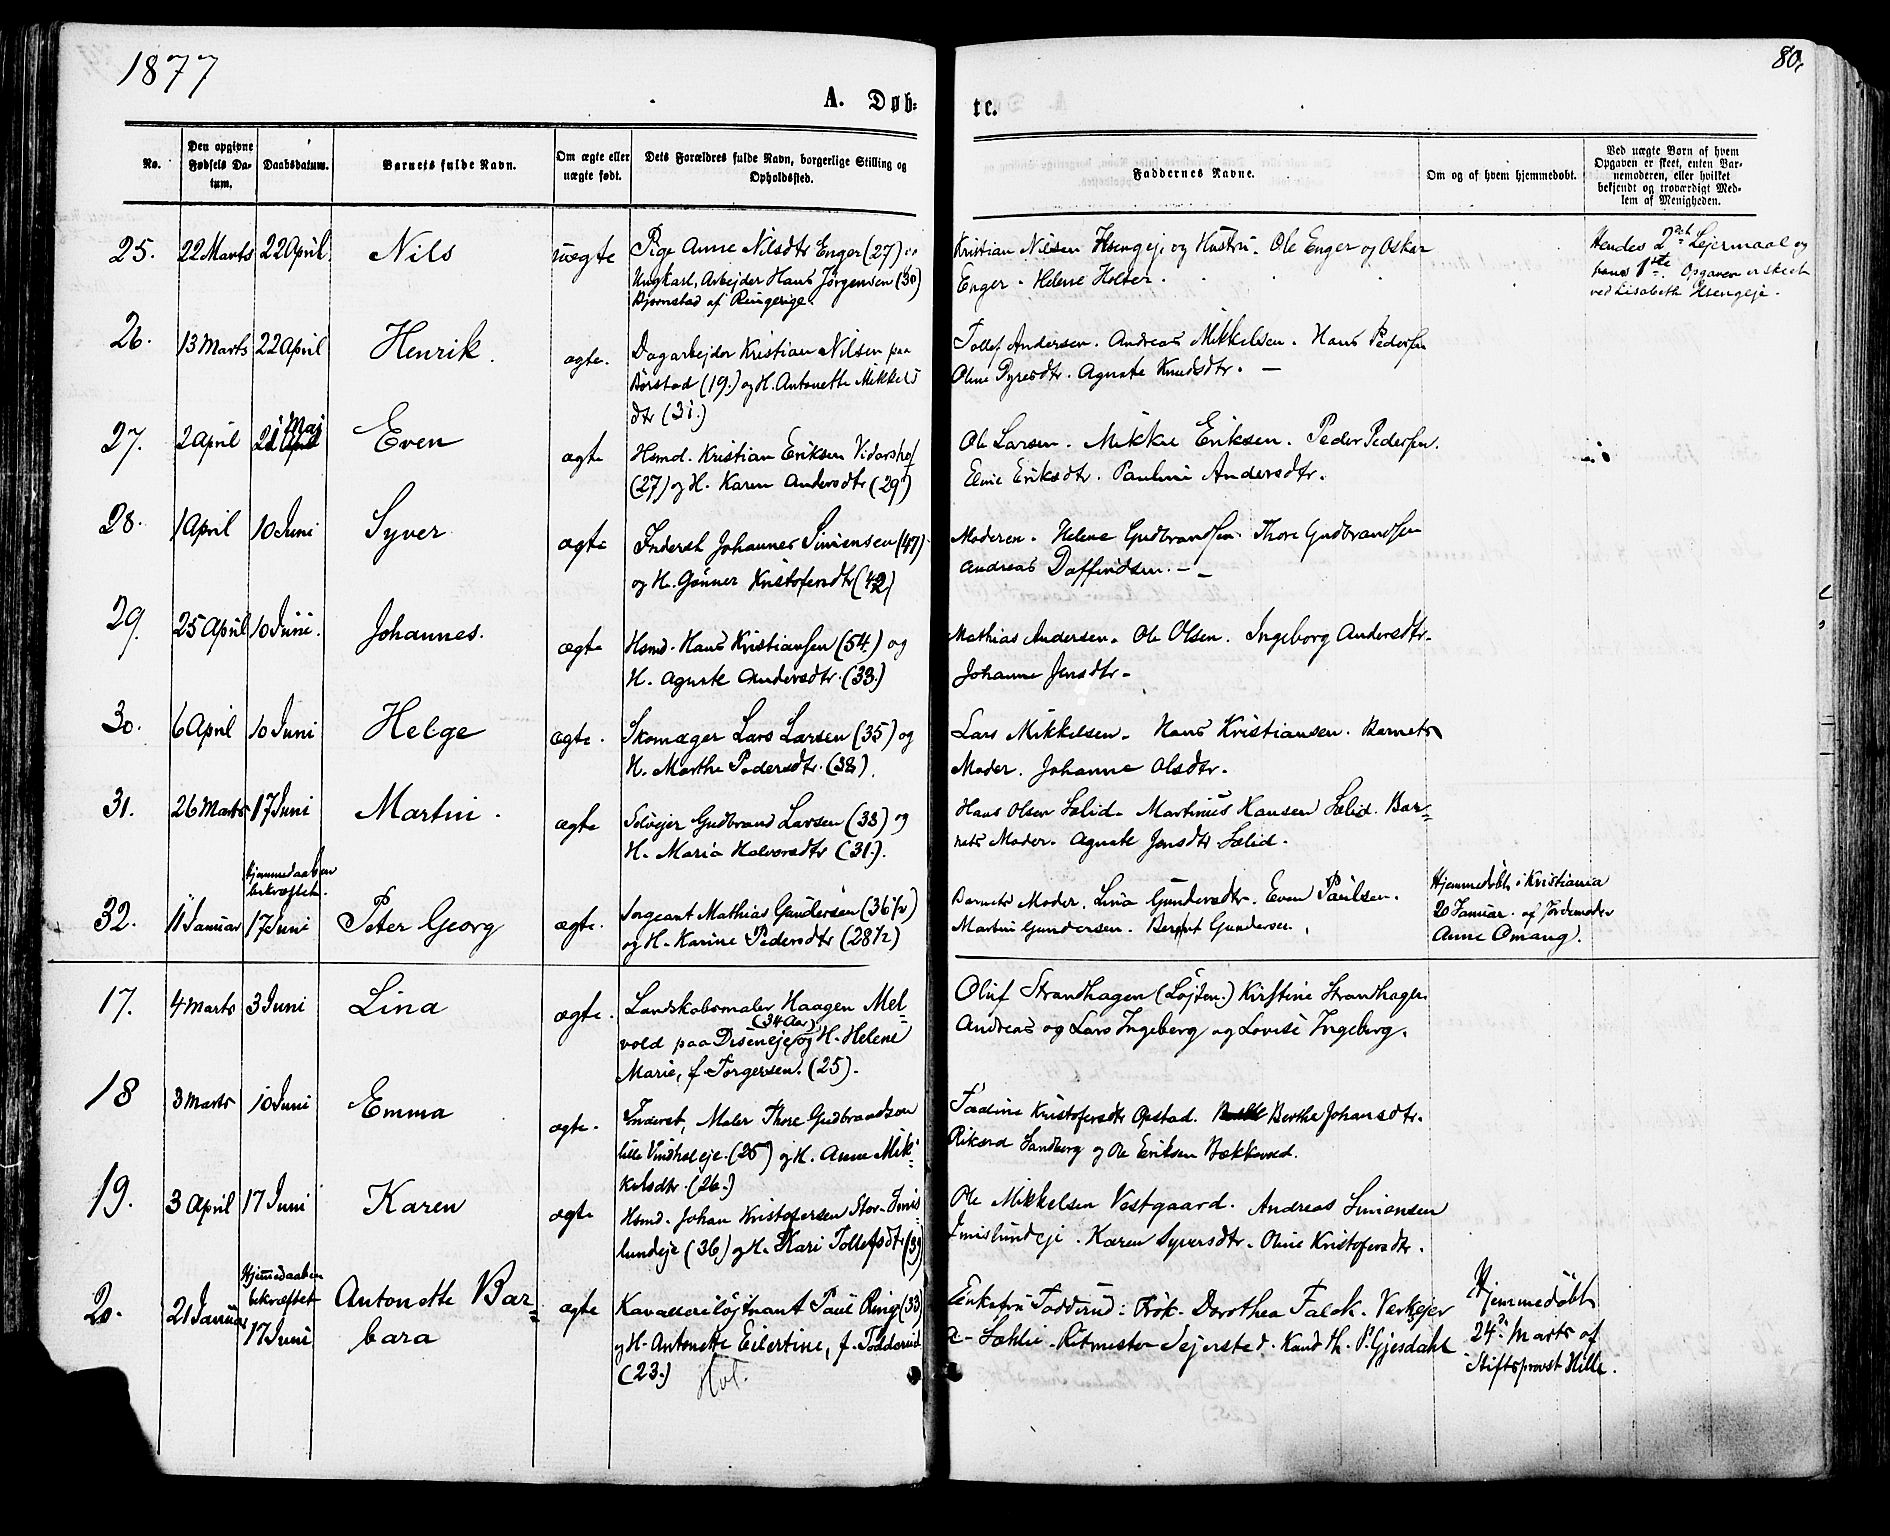 1877
80.
A. Døb-
te.
No.
Den opgivne Fødsels Da-
tum.
Daabsdatum.
Barnets fulde Navn.
Om ægte eller
uægte født.
Dets Forældres fulde Navn, borgerlige Stilling og
Opholdssted.
Faddernes Navne.
Om og af hvem hjemmedøbt.
Ved uægte Børn af hvem
Opgaven er skeet, enten Bar-
nemoderen, eller hvilket
bekjendt og troværdigt Med-
lem af Menigheden.
25. 22 Marts 22 April Nils uægte
Pige Anne Nilsdtr Enger (27) og
Ungkarl, Arbejder Hans Jørgensen (30)
Bjørnstad af Ringerige.
Kristian Nilsen Hsengeje og Hustru. Ole Enger og Oskar
Enger. Helene Holter.
Hendes 2det Lejermaal og
hans 1ste. Opgaven er skeet
ved Lisabeth Hsengeje.
26. 13 Marts 22 April Henrik. ægte.
Dagarbejder Kristian Nilsen paa
Børstad (19.) og H. Antonette Mikkels
dtr (31.)
Tollef Andersen. Andreas Mikkelsen. Hans Pedersen
Oline Syvesdtr. Agnete Knudsdtr. —
27. 2 April 21 Maj Even ægte
Hsmd. Kristian Eriksen Vidarshof
(27) og H. Karen Andersdtr (29)
Ole Larsen. Mikkel Eriksen. Peder Pedersen.
Eline Eriksdtr. Pauline Andersdtr.
28. 1 April 10 Juni Syver ægte
Inderst Johannes Simensen (47)
og H. Gunner Kristofersdtr (42)
Moderen. Helene Gudbrandsen. Thore Gudbrandsen
Andreas Daffinrudsen. —
29. 25 April 10 Juni. Johannes. ægte
Hsmd. Hans Kristiansen (54.) og
H. Agnete Andersdtr. (33.)
Mathias Andersen. Ole Olsen. Ingeborg Andersdtr.
Johanne Jensdtr.
30. 6 April 10 Juni Helge ægte.
Skomager Lars Larsen (35) og
H. Marthe Pedersdtr. (38).
Lars Mikkelsen. Hans Kristiansen. Barnets
Moder. Johanne Olsdtr.
31. 26 Marts 17 Juni Martin. ægte
Selvejer Gudbrand Larsen (33) og
H. Maria Halvorsdtr (31.).
Hans Olsen Lælid. Martinus Hansen Lælid. Bar-
nets Moder. Agnete Jensdtr Lælid.
32. 11 Januar Hjemmedaaben
bekræftet.
17 Juni Peter Georg ægte.
Sergeant Mathias Gundersen (36½)
og H. Karine Pedersdtr (28½)
Barnets Moder. Lina Gundersdtr. Even Paulsen.
Martin Gundersen. Berent Gundersen.
Hjemmedøbt i Kristiania
20 Januar. af Jordemoder
Anne Omang.
17. 4 Marts 3 Juni Lina ægte.
Landskabsmaler Haagen Mel-
(34 Aar)
vold paa Diseneje og H. Helene
Marie, f. Torgersen. (25).
Oluf Strandhagen (Løjtn.) Kirstine Strandhagen
Andreas og Lars Ingeberg og Lovise Ingeberg.
18 3 Marts 10 Juni Emma ægte.
Inderst, Maler Thore Gudbrandsen
lille Vindhol eje. (25) og H. Anne Mik-
kelsdtr. (26.)
Paaline Kristofersdtr Opstad. Berthe Johansdtr.
Rikard Sandberg og Ole Eriksen Bækkevold.
19. 3 April 17 Juni Karen ægte
Hsmd. Johan Kristofersen Stor-Imis-
lundeje (36) og H. Kari Tollefsdtr (39)
Ole Mikkelsen Vestgaard. Andreas Simensen
Imislundeje. Karen Syversdtr. Oline Kristofersdtr.
20. 21 Januar Hjemmedaaben
bekræftet
17 Juni Antonette Bar-
bara ægte
Kavalleriløjtnant Paul Ring (33)
og H. Antonette Eilertine, f. Fodderud
(23.)
Hof.
Enkefru Fodderud. Frøk. Dorothea Falck. Verkejer
A. Sæhlie. Ritmester Sejersted. Kand Th. P. Gjesdahl
Hjemmedøbt
24de Marts af
Stiftsprovst Hille.